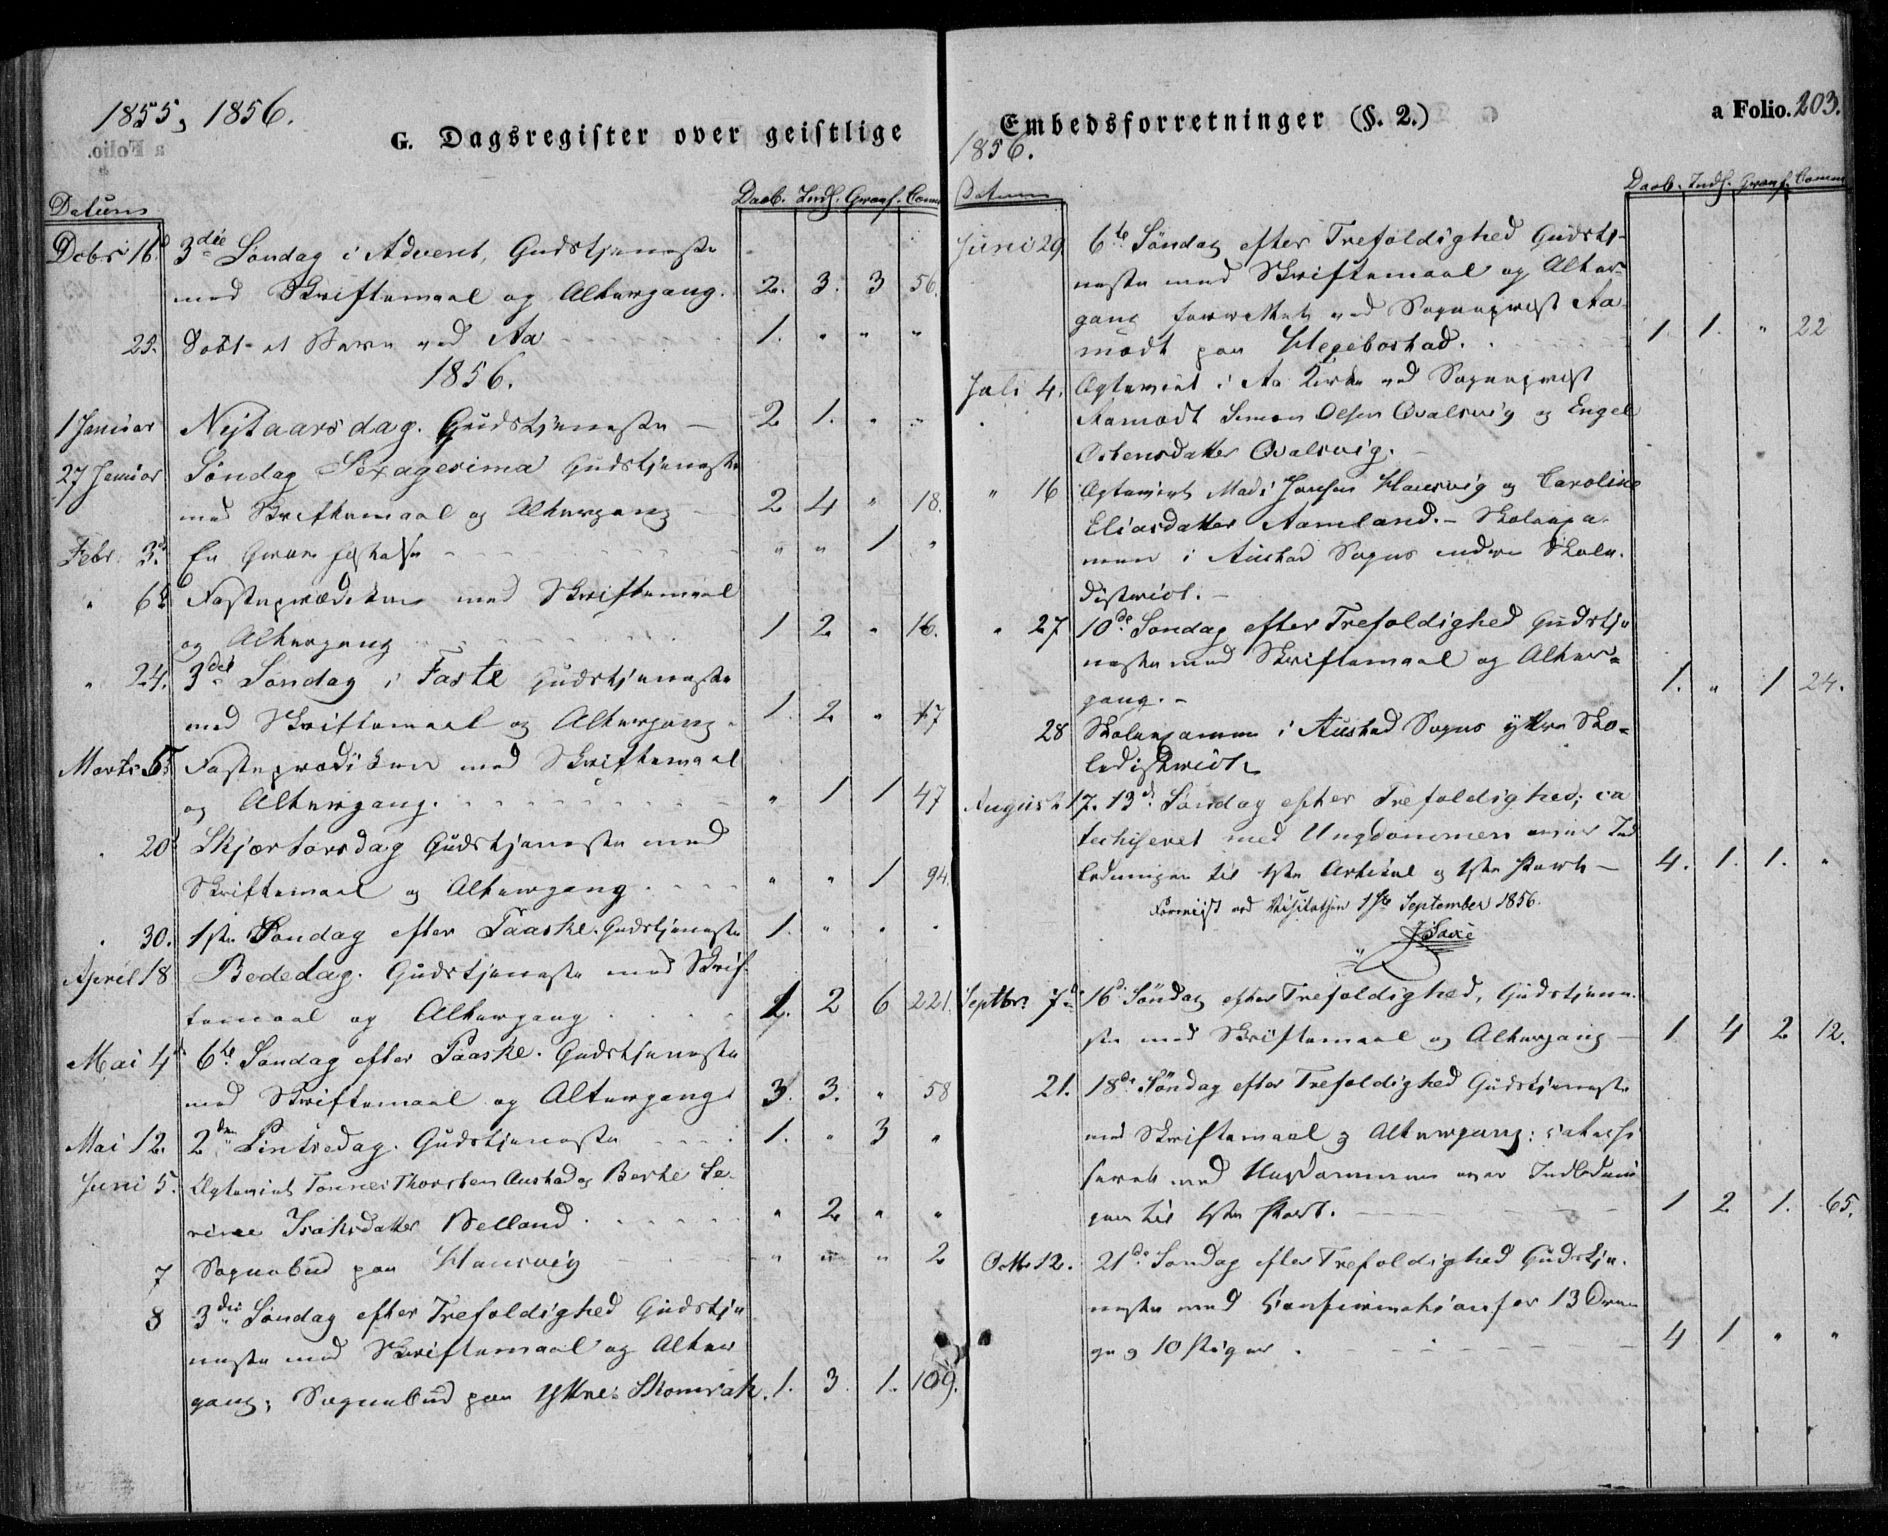 1855, 1856.
G. Dagsregister over geistlige
Datum
Daab. Indl. Graaf. Comm
Decbr 16d 3die Søndag i Advent, Gudstjeneste
med Skriftemaal og Altergang. 2. 3. 3 56.
25. Døbt et Barn ved Aa 1. " " "
1856.
1 Januar Nytaarsdag. Gudstjeneste 2 1. " "
27 Januar Søndag Sexagesima Gudstjeneste
med Skriftemaal og Altergang 2 4 " 18.
Febr. 3d En Gravfæstelse " " 1 "
" 6d Fasteprædiken med Skriftemaal
og Altergang 1 2 " 16.
" 24. 3die Søndag i Faste Gudstjeneste
med Skriftemaal og Altergang. 1. 2 " 17
Marts 5 Fasteprædiken med Skriftemaal
og Altergang. " 1 1 47
" 20d Skjærtorsdag Gudstjeneste med
Skriftemaal og Altergang. " " 1 94.
" 30. 1ste Søndag efter Paaske. Gudstjeneste 1. " " "
April 18 Bededag. Gudstjeneste med Skrif-
temaal og Altergang 2. 2 6 221.
Mai 4d 6te Søndag efter Paaske. Gudstjeneste
med Skriftemaal og Altergang 3. 3. " 58
Mai 12. 2den Pintsedag. Gudstjeneste 1. " 3 "
Juni 5. Ægteviet Tønnes Thorsten Austad og Berte Se-
rine Isaksdatter Helland " 2 " "
7 Sognebud paa Hausvig " " " 2
8 3die Søndag efter Trefoldighed Gudstje
neste med Skriftemaal og Alter
gang; Sognebud paa Yttre Skomrak. 1. 3. 1. 109.
Embedsforretninger (§. 2.)
a Folio. 203.
1856.
Datum
Daab. Indl. Graaf. Comm
Juni 29 6te Søndag efter Trefoldighed Gudstj-
neste med Skriftemaal og Alter-
gang forrettet ved Sognepræst Aa-
modt paa Hegebostad. 1. 1. " 22
Juli 4. Ægteviet i Aa Kirke ved Sognepræst
Aamodt Simon Olsen Qvalsvig og Engel
Ostensdatter Qvalsvig.
" 16 Ægteviet Mads Jonsen Hausvig og Caroline
Eliasdatter Aamland. - Skoleexa-
men i Austad Sogns indre Skole-
district. -
" 27 10de Søndag efter Trefoldighed Gudstje
neste med Skriftemaal og Alter-
gang. - 1. " 1 24.
28 Skoleexamen i Austad Sogns yttre Sko-
ledistrict
August 17. 13de Søndag efter Trefoldighed; ca
techiseret med Ungdommen over Ind
ledningen til 1ste Artikel og 1ste Part - 4. 1. 1. "
Foreviist ved Visitatsen 1ste September 1856.
Septbr. 7d 16d Søndag efter Trefoldighed, Gudstjene-
ste med Skriftemaal og Altergang 1 4 2 12.
21. 18de Søndag efter Trefoldighed Gudstjeneste
med Skriftemaal og Altergang; catechi
seret med Ungdommen over Indlednin
gen til 1ste Part. 1 2 1. 65.
Octbr 12. 21de Søndag efter Trefoldighed Gudstje-
neste med Confirmation for 13 Dren
ge og 10 Piger. 4 1 " "